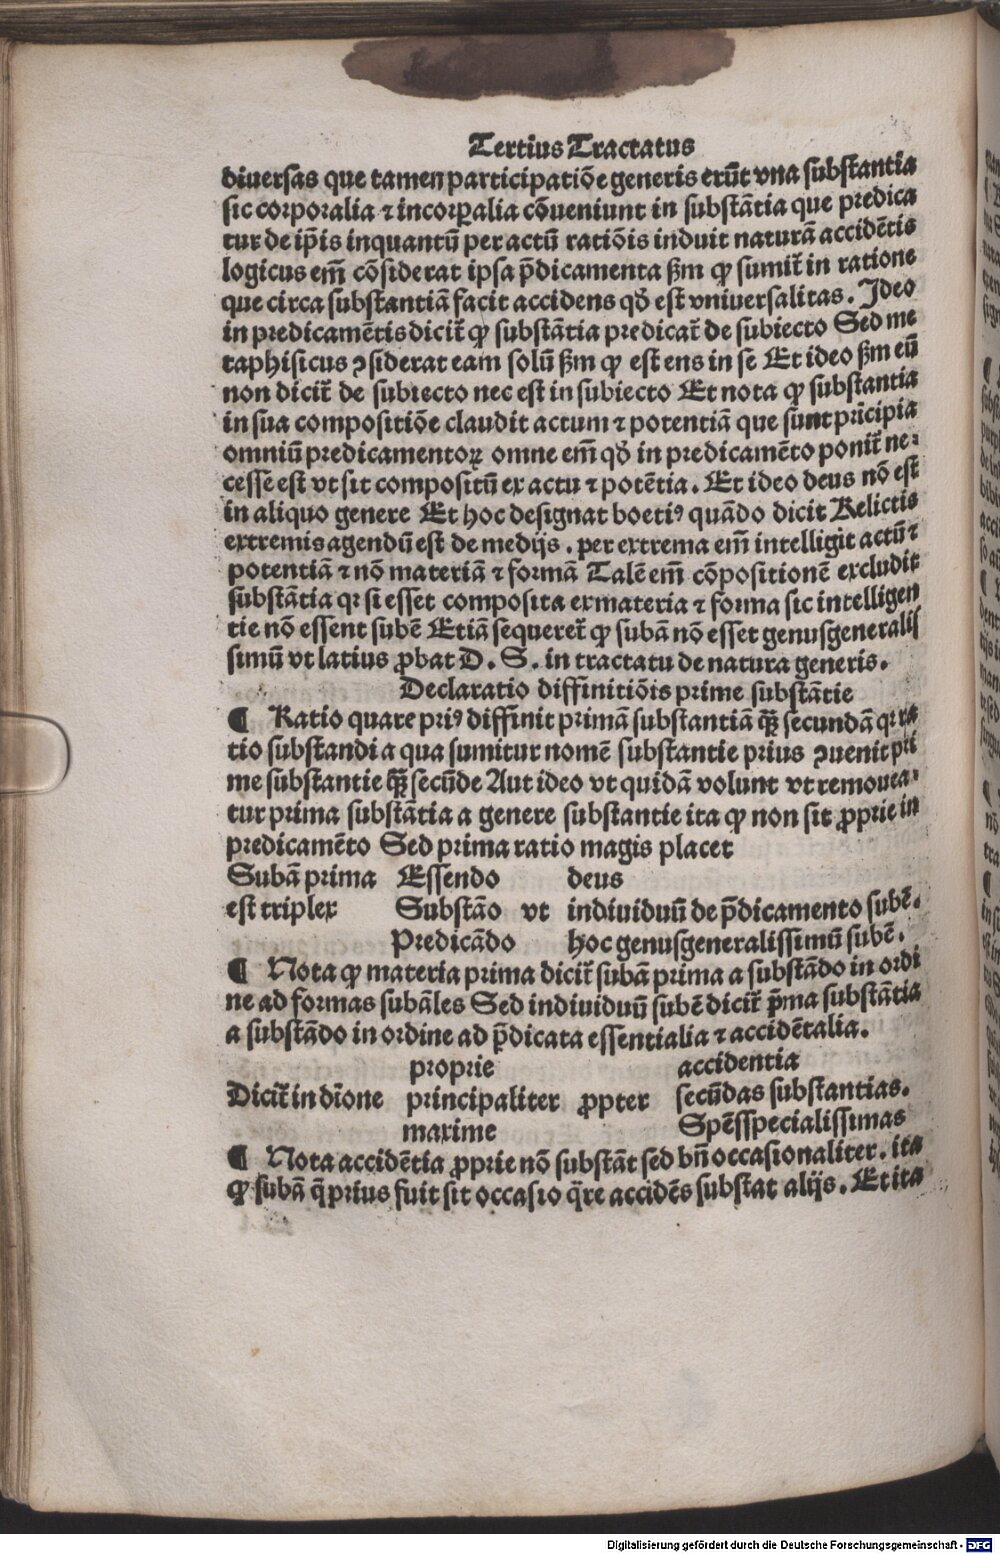 Tertius Tractatus
diuersas que tamen participatiōe generis erūt vna substantia
sic corporalia ⁊ incorꝑalia cōueniunt in substātia que predica
tur de ip̄is inquantū per actū ratiōis induit naturā accidētis
logicus em̄ cōsiderat ipsa p̄dicamenta ẜm ꝙ sumit᷑ in ratione
que circa substantiā facit accidens qḋ est vniuersalitas. Ideo
in predicamētis dicit᷑ ꝙ substātia predicat᷑ de subiecto Sed me
taphisicus ꝯsiderat eam solū ẜm ꝙ est ens in se Et ideo ẜm eū
non dicit᷑ de subiecto nec est in subiecto Et nota ꝙ substantia
in sua compositiōe claudit actum ⁊ potentiā que sunt pricipia
omniū predicamentoꝝ omne em̄ qḋ in predicamēto ponit᷑ ne⸗
cesse est vt sit compositū ex actu ⁊ potētia. Et ideo deus nō est
in aliquo genere Et hoc designat boetiꝰ quādo dicit Relictis
extremis agendū est de medijs. per extrema em̄ intelligit actū ⁊
potentiā ⁊ nō materiā ⁊ formā Talē em̄ cōpositionē excludit
substātia qꝛ si esset composita ex materia ⁊ forma sic intelligen
tie nō essent subē Etiā sequeret᷑ ꝙ subā nō esset genusgeneralis
simū vt latius ꝓbat D. S. in tractatu de natura generis.
Declaratio diffinitiōis prime substātie
¶ Ratio quare priꝰ diffinit primā substantiā qꝫ̄ secundā qꝛ ra
tio substandi a qua sumitur nomē substantie prius ꝯuenit pri
me substantie qꝫ̄ secūde Aut ideo vt quidā volunt vt remouea⸗
tur prima substātia a genere substantie ita ꝙ non sit ꝓprie in
predicamēto Sed prima ratio magis placet
Subā prima Essendo deus
est triplex Substāo vt indiuiduū de p̄dicamento subē.
Predicādo hoc genusgeneralissimū subē.
¶ Nota ꝙ materia prima dicit᷑ subā prima a substādo in ordi
ne ad formas subāles Sed indiuiduū subē dicit᷑ p̄ma substātia
a substādo in ordine ad p̄dicata essentialia ⁊ accidētalia.
proprie accidentia
Dicit᷑ in dīone principaliter ꝓpter secūdas substantias.
maxime Spēsspecialissimas
¶ Nota accidētia ꝓprie nō substāt sed bn̄ occasionaliter. ita
ꝙ subā q̄ prius fuit sit occasio q̄re accidēs substat alijs. Et ita
Digitalisierung gefördert durch die Deutsche Forschungsgemeinschaft - DFG